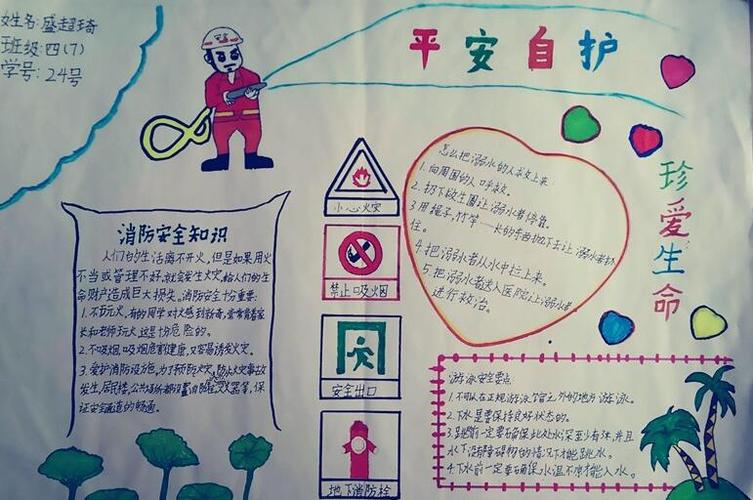 姓名:盛超琦
班级:四(7)
学号:24号
平安自护
珍爱生命
消防安全知识
人们的生活离不开火,但是如果用火
不当或管理不好,就会发生火灾,给人们的生
命财产造成巨大损失。消防安全十分重要:
1.不玩火。有的同学对火感到新奇,常常背着家
长和老师玩火,这是十分危险的。
2.不吸烟,吸烟危害健康,又容易诱发火灾。
3.爱护消防设施。为了预防火灾,防止火灾事故
发生,居民楼、公共场所都设置消防栓、灭火器等,保
证安全通道的畅通。
小心火灾
禁止吸烟
安全出口
地下消防栓
怎么把溺水的人救上来:
1.向周围的人呼救。
2.扔下救生圈让溺水者停靠。
3.用绳子,竹竿……长的东西扔下去让溺水者抓
住。
4.把溺水者从水中拉上来。
5.把溺水者送入医院让溺水者
进行救治。
游泳安全要点
1.不可以在正规游泳馆之外的地方游泳。
2.下水是要保持良好状态的。
3.跳前一定要确保此处水深至少有3米,并且
水下没有障碍物的情况下才能跳水。
4.下水前一定要确保水温不凉才能入水。